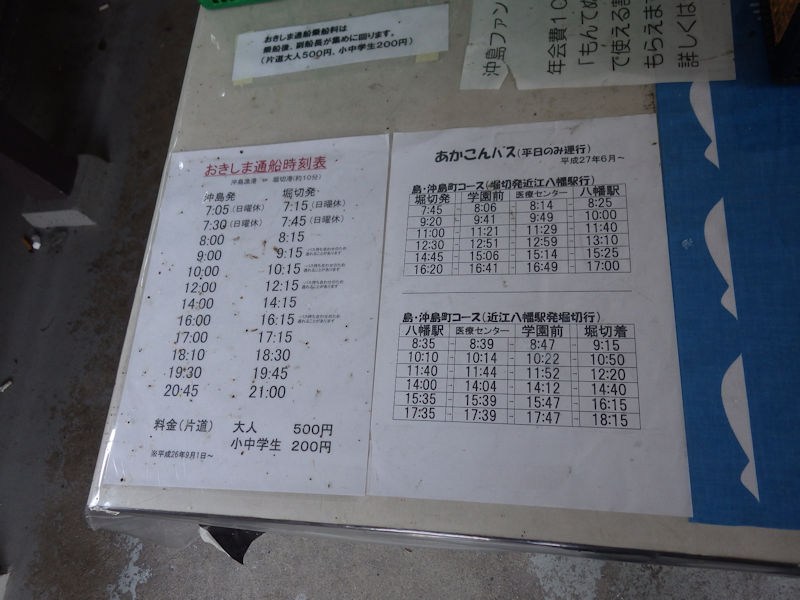 おきしま通船乗船料は
乗船後、副船長が集めに回ります。
(片道大人500円、小中学生200円)
沖島ファン
年会費10
「もんてぬ
で使える割
もらえま
詳しくは
おきしま通船時刻表
沖島漁港 ⇔ 堀切港(約10分)
沖島発 堀切発
7:05(日曜休) 7:15(日曜休)
7:30(日曜休) 7:45(日曜休)
8:00 8:15
9:00 9:15 バス待ち合わせのため
遅れることがあります
10:00 10:15 バス待ち合わせのため
遅れることがあります
12:00 12:15 バス待ち合わせのため
遅れることがあります
14:00 14:15
16:00 16:15 バス待ち合わせのため
遅れることがあります
17:00 17:15
18:10 18:30
19:30 19:45
20:45 21:00
料金(片道) 大人 500円
小中学生 200円
※平成26年9月1日~
あかこんバス(平日のみ運行)
平成27年6月~
島・沖島町コース(堀切発近江八幡駅行)
堀切発 学園前 医療センター 八幡駅
7:45 - 8:06 - 8:14 - 8:25
9:20 - 9:41 - 9:49 - 10:00
11:00 - 11:21 - 11:29 - 11:40
12:30 - 12:51 - 12:59 - 13:10
14:45 - 15:06 - 15:14 - 15:25
16:20 - 16:41 - 16:49 - 17:00
島・沖島町コース(近江八幡駅発堀切行)
八幡駅 医療センター 学園前 堀切着
8:35 - 8:39 - 8:47 - 9:15
10:10 - 10:14 - 10:22 - 10:50
11:40 - 11:44 - 11:52 - 12:20
14:00 - 14:04 - 14:12 - 14:40
15:35 - 15:39 - 15:47 - 16:15
17:35 - 17:39 - 17:47 - 18:15